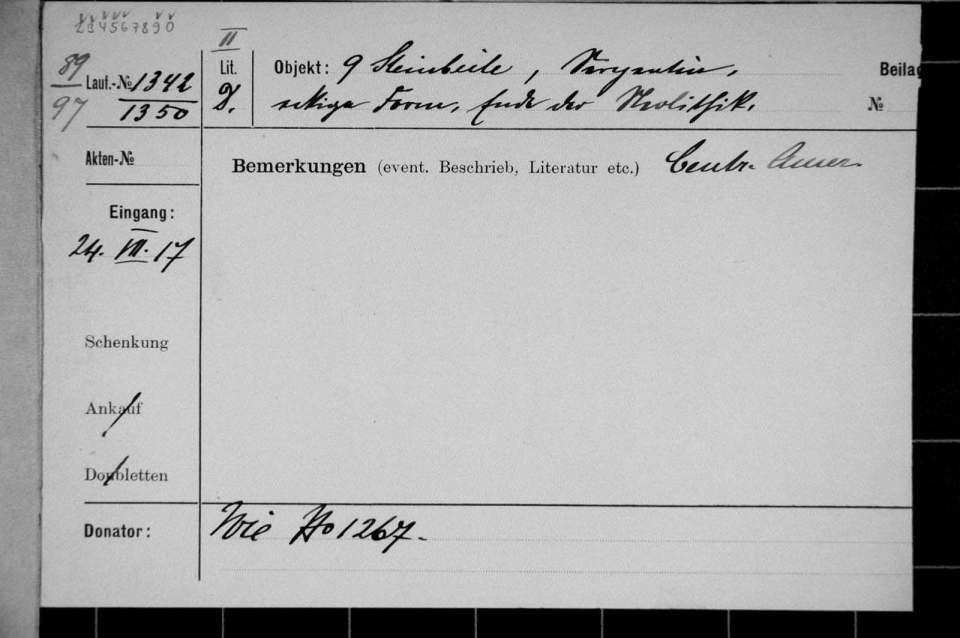 1234567890
89
97
Lauf.-№ 1342
1350
II
Lit.
D.
Objekt: 9 Steinbeile, Serpentin,
eckige Form, Ende der Neolithik.
Beilag
№
Akten-№
Bemerkungen (event. Beschrieb, Literatur etc.) Centr. Amer.
Eingang:
24. VII. 17
Schenkung
Ankauf
Doubletten
Donator: Wie No 1267.